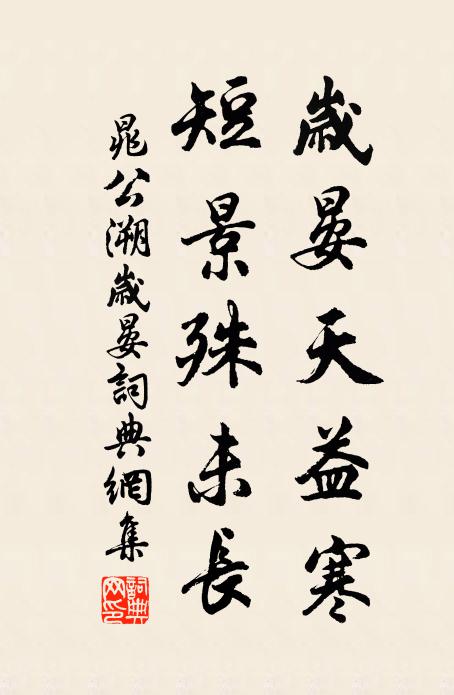 歲晏天益寒
短景殊未長
晁公溯歲晏詞典網集
詞典網印